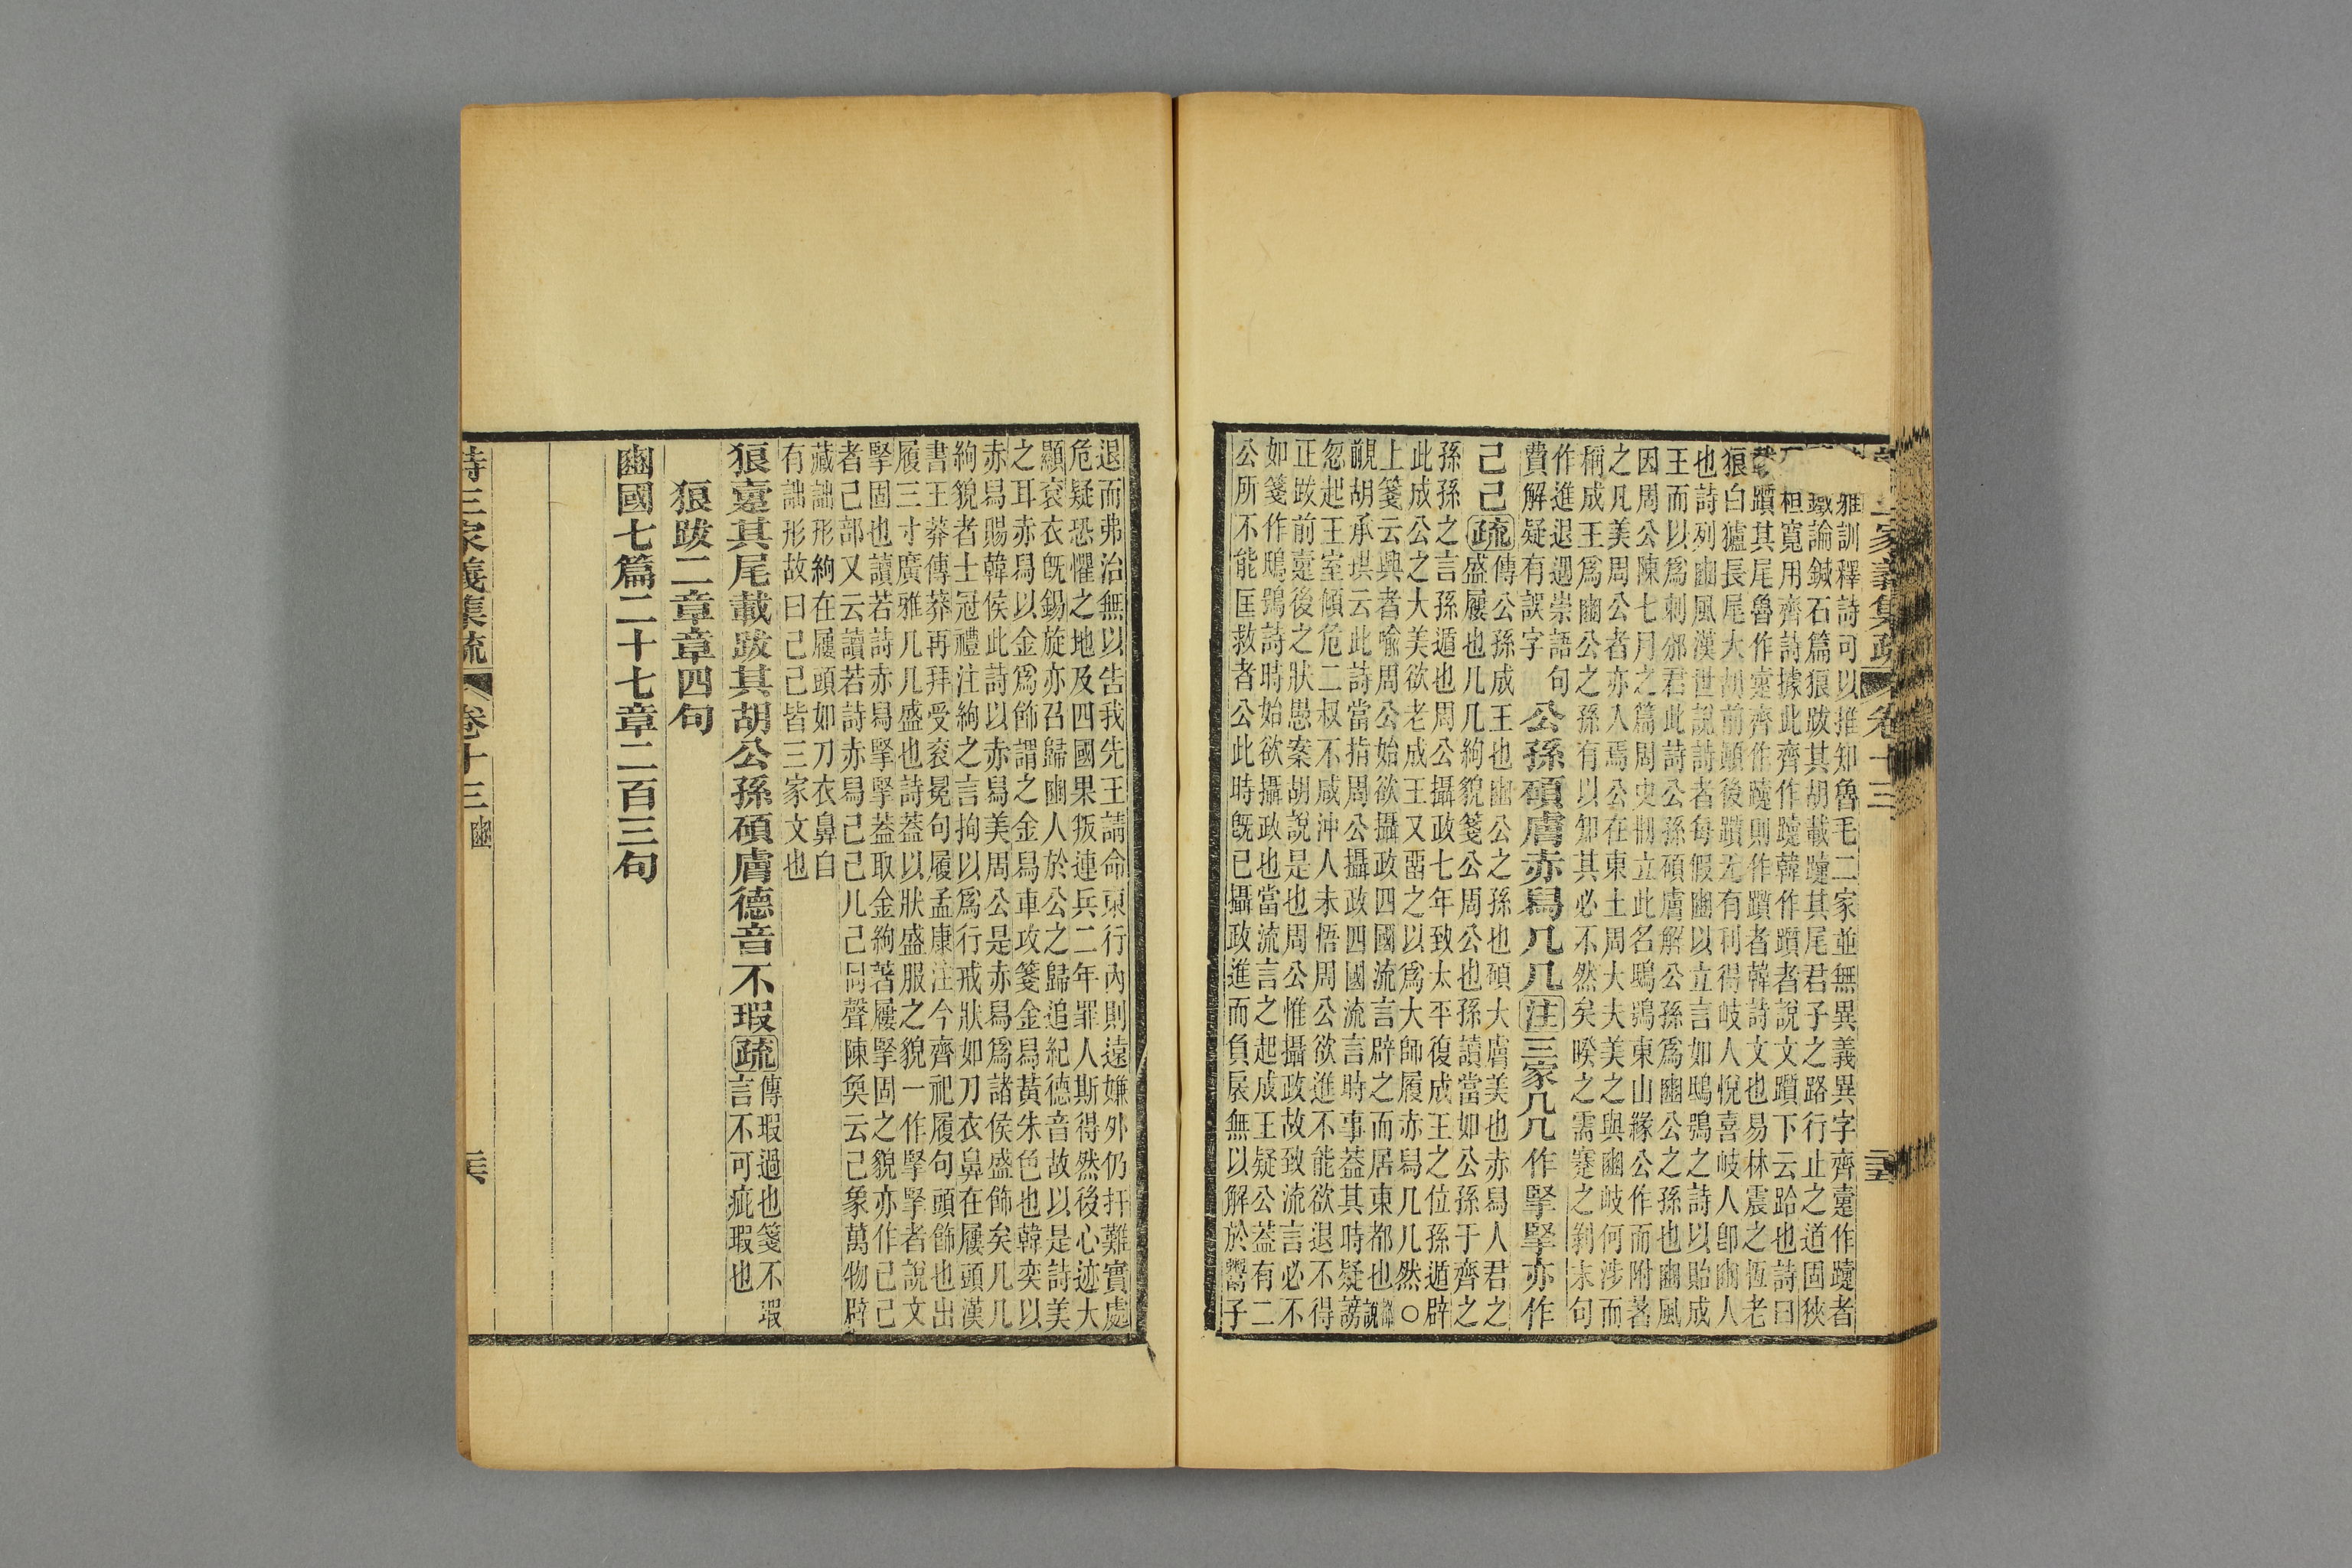 雅訓釋詩可以推知魯毛二家並無異義異字齊疐作躓者
璥論鍼石篇狼跋其胡載躓其尾君子之路行止之道固狹
桓寬用齊詩據此齊作躓韓作躓者說文躓下云跲也詩曰
躓其尾魯作疐齊作躓則作躓者韓詩文也易林震之恆老
狼白獹長尾大胡前顛後躓无有利得岐人悅喜岐人卽豳人
也詩列豳風漢世說詩者每假豳以立言如鴟鴞之詩以貽成
王而以爲刺邠君此詩公孫碩膚解公孫爲豳公之孫也豳風
因周公陳七月之篇周史冊立此名鴟鴞東山緣公作而附著
之凡美周公者亦入焉公在東土周大夫美之與豳岐何涉而
稱成王爲豳公之孫有以知其必不然矣睽之需蹇之剝末句
作進退遇祟語句
費解疑有誤字
公孫碩膚赤舄几几注三家几几作掔掔亦作
己己疏
傳公孫成王也豳公之孫也碩大膚美也赤舄人君之
盛屨也几几絇貌箋公周公也孫讀當如公孫于齊之
孫孫之言孫遁也周公攝政七年致太平復成王之位孫遁辟
此成公之大美欲老成王又畱之以爲大師履赤舄几几然○
上箋云興者喻周公始欲攝政四國流言辟之而居東都也
覯胡承珙云此詩當指周公攝政四國流言時事蓋其時疑謗
忽起王室傾危二叔不咸沖人未悟周公欲進不能欲退不得
正跋前疐後之狀愚案胡說是也周公惟攝政故致流言必不
如箋作鴟鴞詩時始欲攝政也當流言之起成王疑公蓋有二
公所不能匡救者公此時旣已攝政進而負扆無以解於鬻子
退而弗治無以告我先王請命東行內則遠嫌外仍扞難實處
危疑恐懼之地及四國果叛連兵二年罪人斯得然後心迹大
顯袞衣旣錫旋亦召歸豳人於公之歸追紀德音故以是詩美
之耳赤舄以金爲飾謂之金舄車攻箋金舄黃朱色也韓奕以
赤舄賜韓侯此詩以赤舄美周公是赤舄爲諸侯盛飾矣几几
絇貌者士冠禮注絇之言拘以爲行戒狀如刀衣鼻在屨頭漢
書王莽傳莽再拜受袞冕句履孟康注今齊祀履句頭飾也出
履三寸廣雅几几盛也詩蓋以狀盛服之貌一作掔掔者說文
掔固也讀若詩赤舄掔掔蓋取金絇著屨掔固之貌亦作己己
者己部又云讀若詩赤舄己己几己同聲陳奐云己象萬物辟
藏詘形絇在屨頭如刀衣鼻自
有詘形故曰己己皆三家文也
狼疐其尾載跋其胡公孫碩膚德音不瑕疏
傳瑕過也箋不瑕
言不可疵瑕也
狼跋二章章四句
豳國七篇二十七章二百三句
詩三家義集疏 卷十三 豳